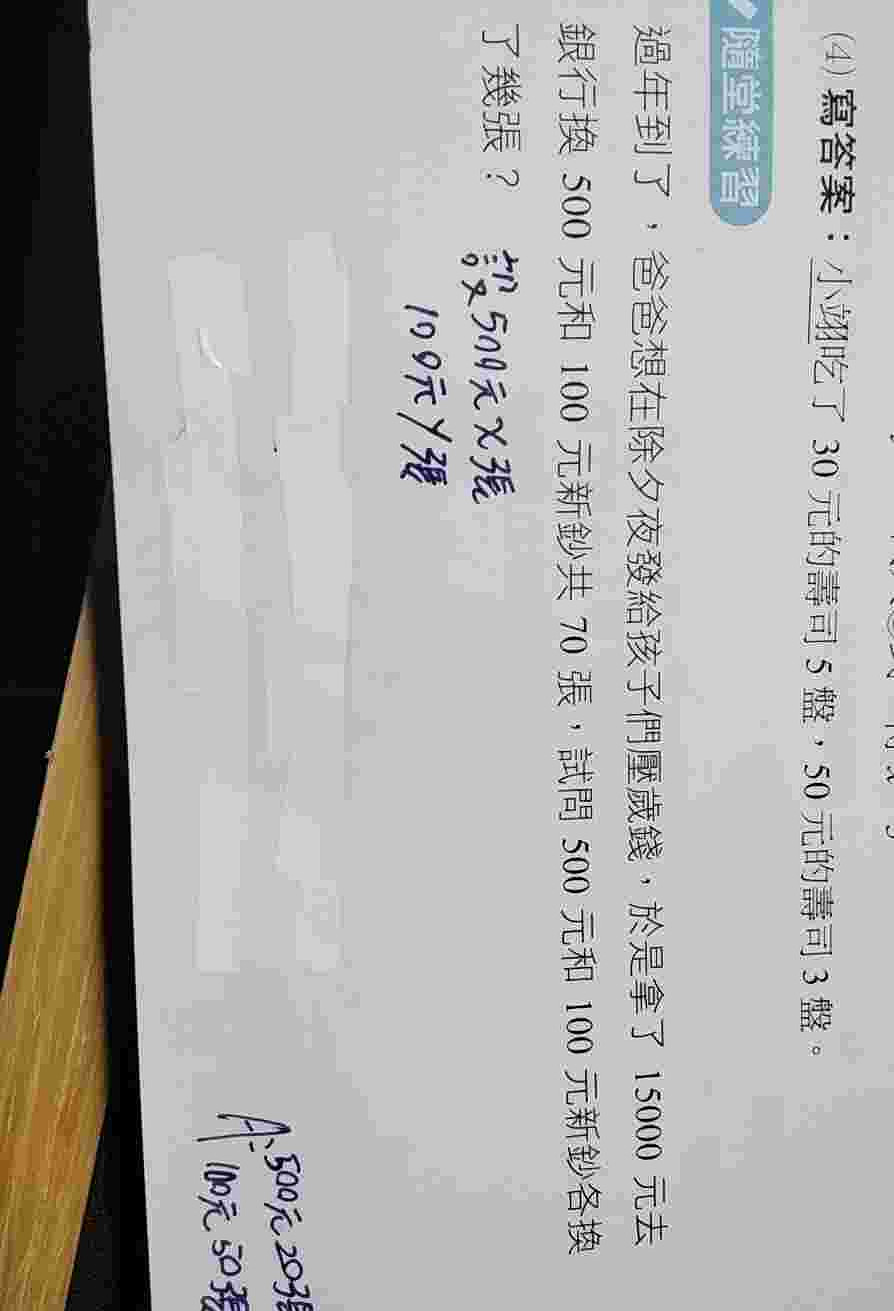 (4) 寫答案：小翊吃了 30 元的壽司 5 盤，50 元的壽司 3 盤。
隨堂練習
過年到了，爸爸想在除夕夜發給孩子們壓歲錢，於是拿了 15000 元去
銀行換 500 元和 100 元新鈔共 70 張，試問 500 元和 100 元新鈔各換
了幾張？
設500元x張
100元y張
A:500元20張
100元50張